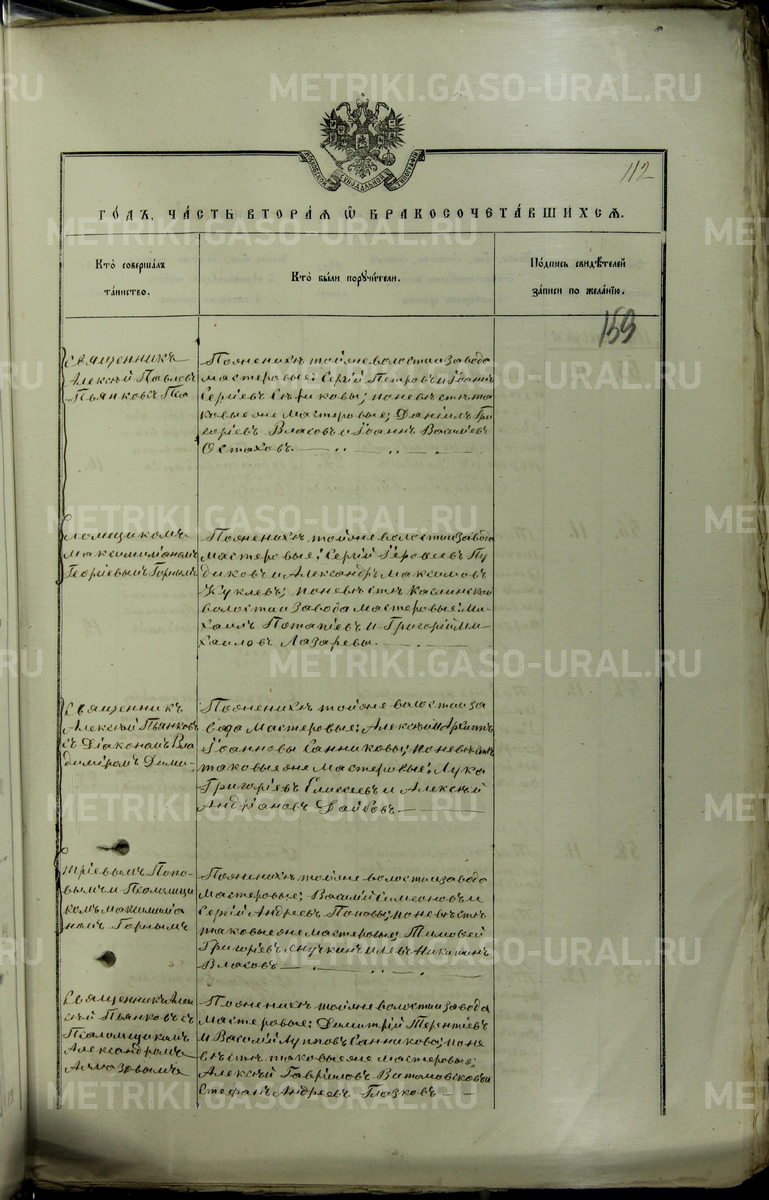 METRIKI.GASO-URAL.RU
МОСКОВСКОЙ СѴНОДАЛЬНОЙ ТИПОГРАФІИ
112
ГО́ДЪ, ЧА́СТЬ ВТОРА́Я Ѡ҆ БРАКОСОЧЕТА́ВШИХСЯ.
Кто̀ соверша́лъ
та́инство.
Кто̀ бы́ли порꙋчи́тели.
По́дпись свидѣ́телей
за́писи по жела́нїю.
159
Священникъ
Алексѣй Павловъ
Пьянковъ Пса
Поженихѣ тойже волости и завода
мастеровые: Сергій Петровъ и Іоаннъ
Сергіевъ поневѣстѣ та
ковые же мастеровые; Даніилъ Гри
горіевъ Власовъ и Іоаннъ Василіевъ
Остаховъ.
ломщикомъ
Максимиліаномъ
Георгіевымъ Горнымъ
Поженихѣ тойже волости и завода
мастеровые: Сергій Пу
диковъ и Александръ Максимовъ
Куклевъ; поневѣстѣ Каслинской
волости и завода мастеровые: Ми
хаилъ Потапіевъ и Григорій Ми
хаиловъ Лазаревы.
Священникъ
Алексѣй Пьянковъ
съ Діакономъ Вла
димиромъ Дими
Поженихѣ тойже волости и за
вода мастеровые: Алексѣй и Архипъ
Іоанновы Санниковы; поневѣстѣ
таковые же мастеровые: Лука
Григоріевъ Елисеевъ и Алексѣй
Андріановъ
тріевымъ Попо
вымъ и Псаломщи
комъ Максимилiа
номъ Горнымъ
Поженихѣ тойже волости и завода
мастеровые: Василій Симеоновъ и
Сергій Андреевъ Поповы; поневѣстѣ
таковые же мастеровые: Тимофей
Григоріевъ и Левъ Никитинъ
Власовъ
Священникъ Алек
сѣй Пьянковъ съ
Псаломщикомъ
Александромъ
Алмазовымъ
Поженихѣ тойже волости и завода
мастеровые: Димитрій Терентіевъ
и Василій Лупповъ Санниковы; поне
вѣстѣ таковые же мастеровые:
Алексѣй Гавріиловъ и
Стефанъ Андреевъ Глазковъ